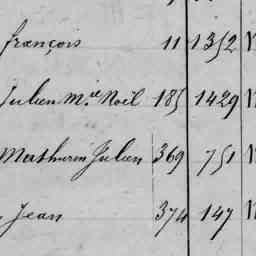 françois 11 1352 N
Julien m.ie Noël 185 1429 N
Mathurin Julien 369 751 N
Jean 374 147 N